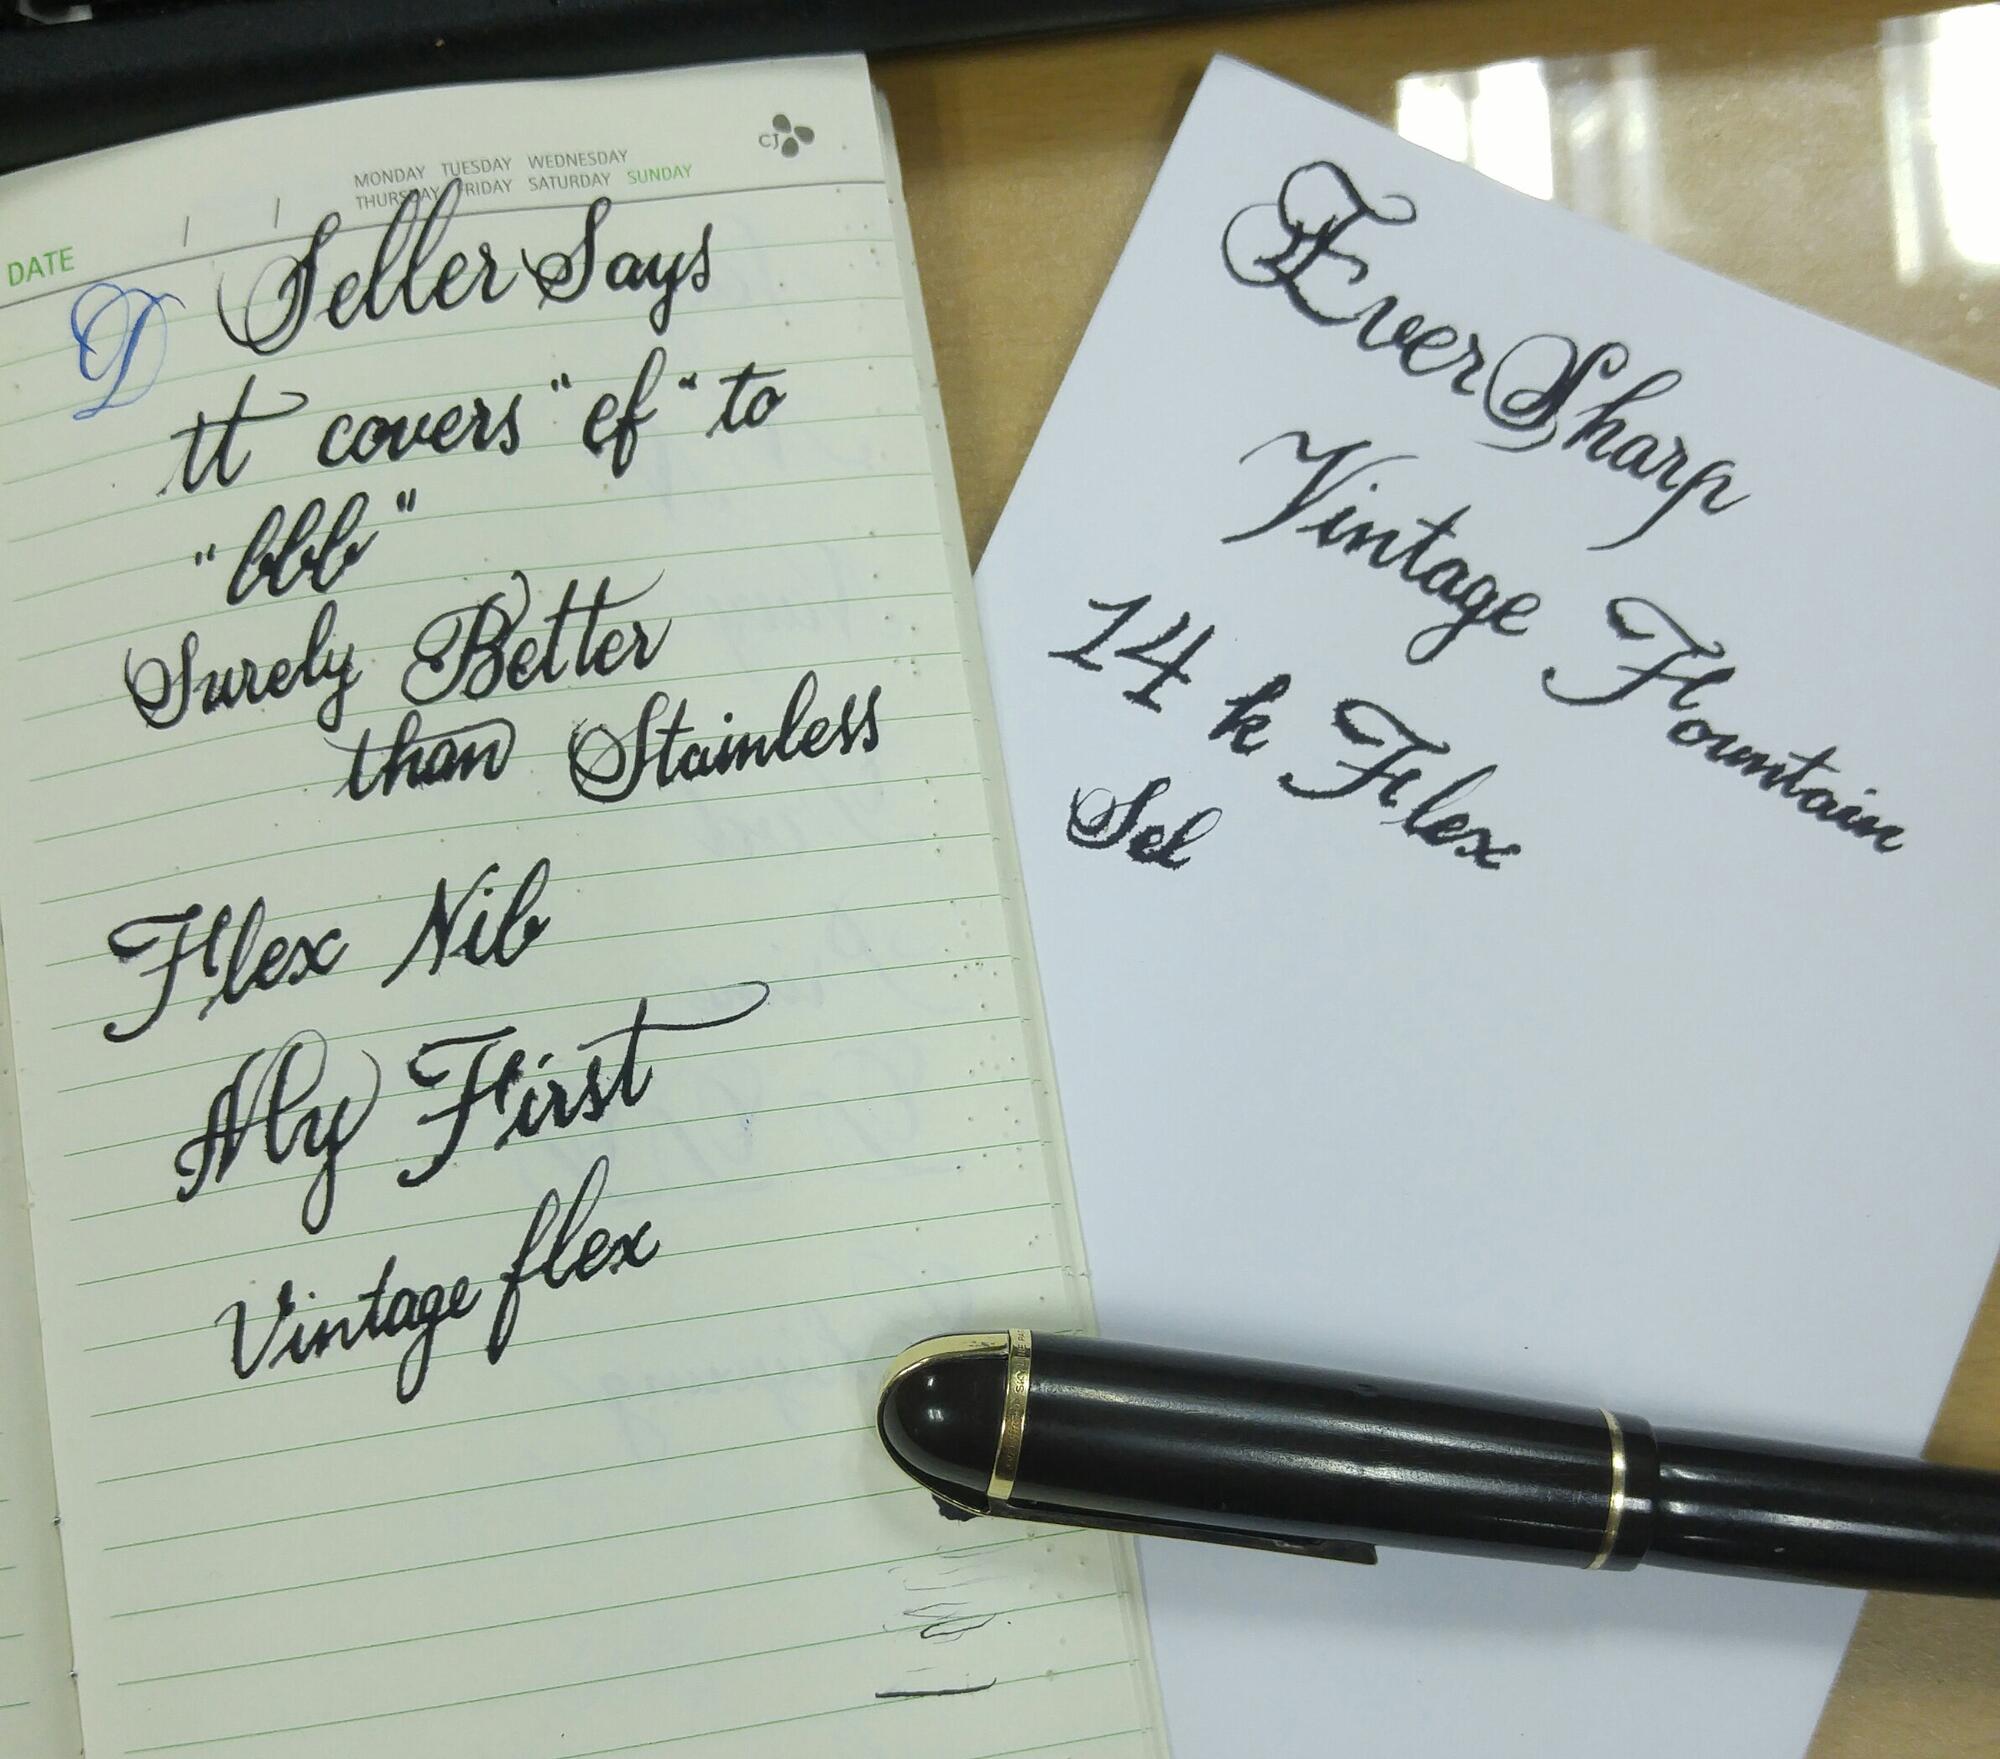 CJ
MONDAY TUESDAY WEDNESDAY
THURSDAY FRIDAY SATURDAY SUNDAY
DATE
D
Seller Says
It covers "ef" to
"bbb"
Surely Better
than Stainless
Flex Nib
My First
Vintage flex
EverSharp
Vintage Fountain
14 k Flex
Sel